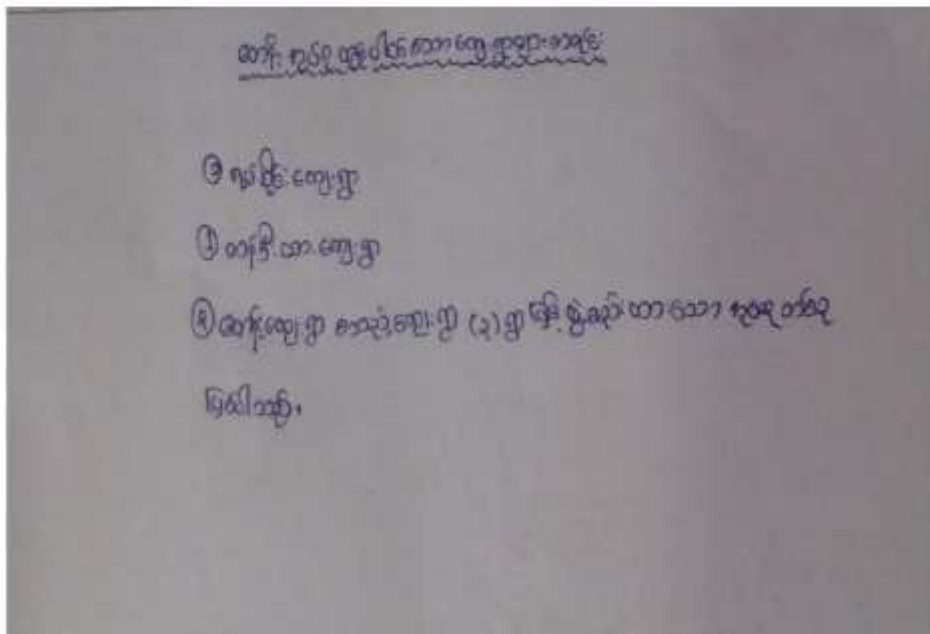 တောင်း အုပ်စု တွင် ပါဝင်သော ကျေးရွာများ စာရင်း
① ရပ်စိုင်း ကျေးရွာ
② တန်ဦးထား ကျေးရွာ
③ တောင်းကျေးရွာ စသည့် ကျေးရွာ (၃) ရွာ ဖြင့် ဖွဲ့စည်း ထားသော အုပ်စု တစ်စု
ဖြစ်ပါသည်။